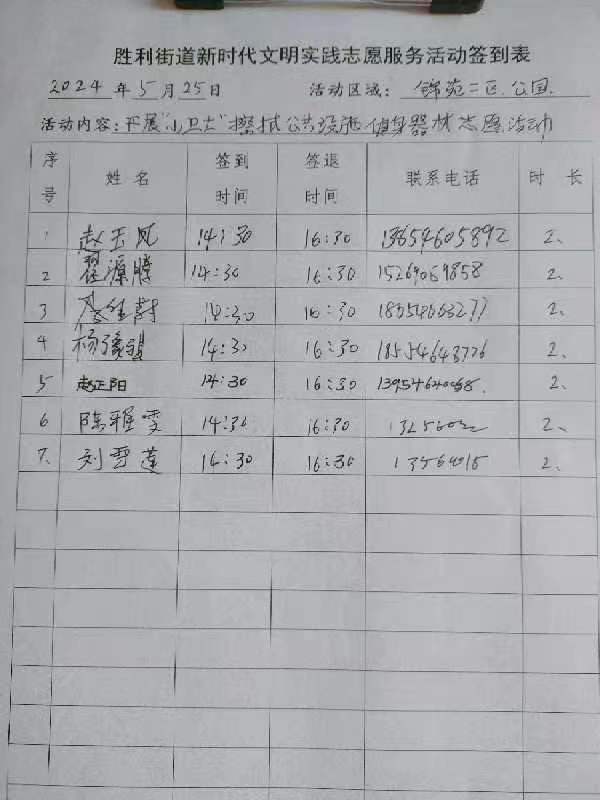 胜利街道新时代文明实践志愿服务活动签到表
2024年5月25日 活动区域: 锦苑二区公园
活动内容: 开展"小卫士"擦拭公共设施健身器材志愿活动
序号 姓名 签到时间 签退时间 联系电话 时长
1 赵玉凤 14:30 16:30 13654605892 2、
2 翟源腾 14:30 16:30 15269069858 2、
3 14:30 16:30 18554663277 2、
4 杨 14:30 16:30 18554643726 2、
5 赵正阳 14:30 16:30 2、
6 陈雅雯 14:30 16:30 2、
7、 刘雪莲 14:30 16:30 2、